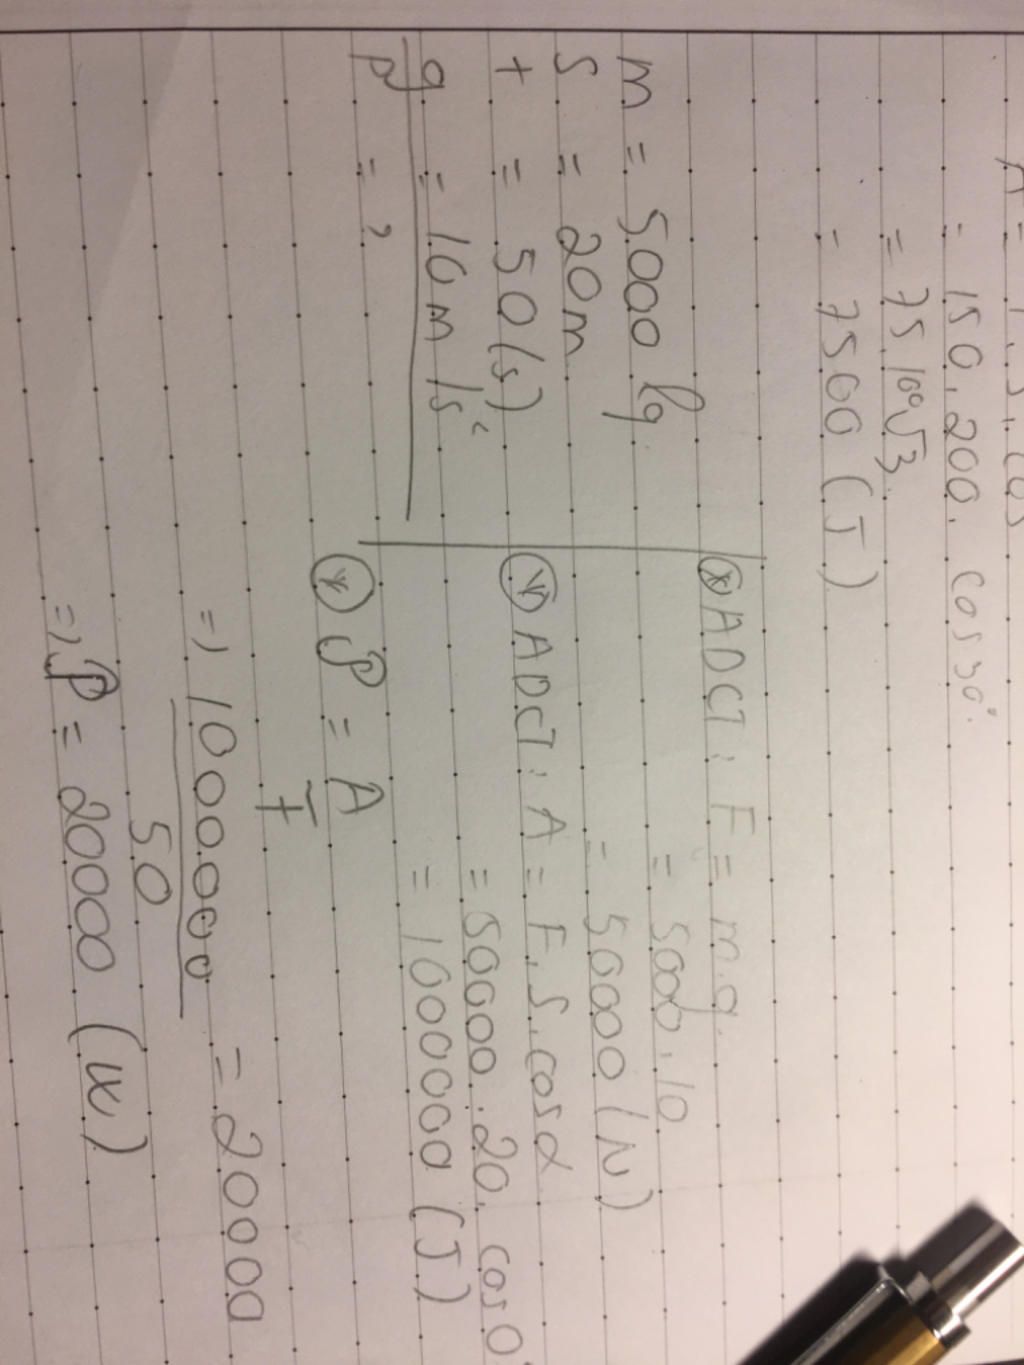 = 150.200. cos 30°.
= 75.100√3
= 7500 (J)
m = 5000 kg
S = 20m
t = 50(s)
g = 10m/s²
P = ?
ADCT: F = m.g
= 5000.10
= 50000 (N)
ADCT: A = F.S.cosα
= 50000.20. cos0
= 100000 (J)
P = A
t
=) 1000.000 = 20000
50
=) P = 20000 (W)